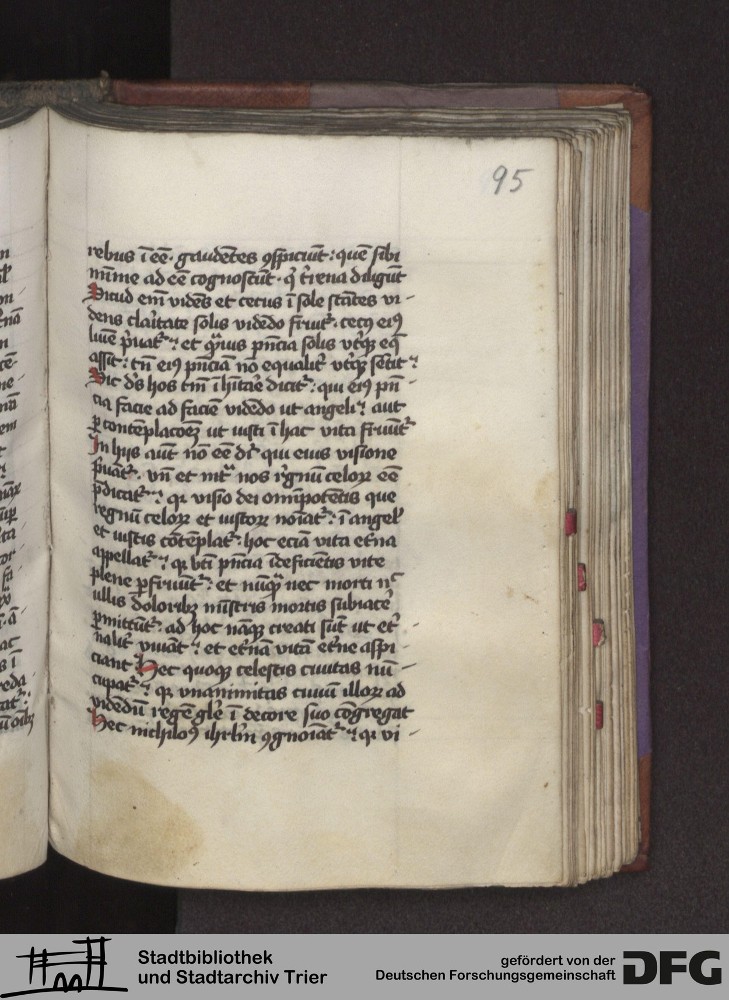 95
rebus ī eē · gaudētes ꝯspiciūt : quē sibi
mīme ad eē cognoscūt · q̇ t̄rena diligūt
Sicud em̄ vidēs et cecus ī sole stātes vi-
dens claritate solis vidēdo fruit᷑ · cecꝰ eiꝰ
et q̄ꝫuis p̄ncia solis vtꝫqꝫ eqͣ
assit : tn̄ eiꝰ p̄nciā nō equalit᷑ vtꝫqꝫ sētit :
Sic dn̄s hos tm̄ ihītāe dicit᷑ : qui eiꝰ pn̄-
cia facie ad faciē vidēdo ut angeli : aut
ꝑ contēplacoēꝫ ut iusti ī hac vita fruūt᷑
In hijs aūt nō eē dr̄ qui eius visione
pͥuāt᷑ · vn̄ et nos r̄gnū celoꝝ eē
p̄dicat᷑ : qꝛ visio dei omīpotētis que
regnū celoꝝ et iustoꝝ noīat᷑ : ī angel̓
et iustis cōtēplat᷑ · hoc eciā vita et̄na
appellat᷑ : qꝛ bt̄i p̄ncia īdeficiētis vite
plene ꝑfruūt᷑ : et nūqͣ nec morti nͨ
ullis doloribꝫ mīstris mortis subiacē
ꝑmittūt᷑ : ad hoc nāqꝫ creati sūt ut et᷑-
nalit᷑ viuāt : et et̄nā vitā et̄ne aspi-
ciant Hec quoqꝫ celestis ciuitas nū-
cupat᷑ : qꝛ vnanimitas ciuiū illoꝝ ad
vidēdū regē gl̄e ī decore suo cōgregat᷑
Hec nichilo9 ihrl̄m ꝯgnoīat᷑ : qꝛ vi-
Stadtbibliothek
und Stadtarchiv Trier
gefördert von der
Deutschen Forschungsgemeinschaft
DFG